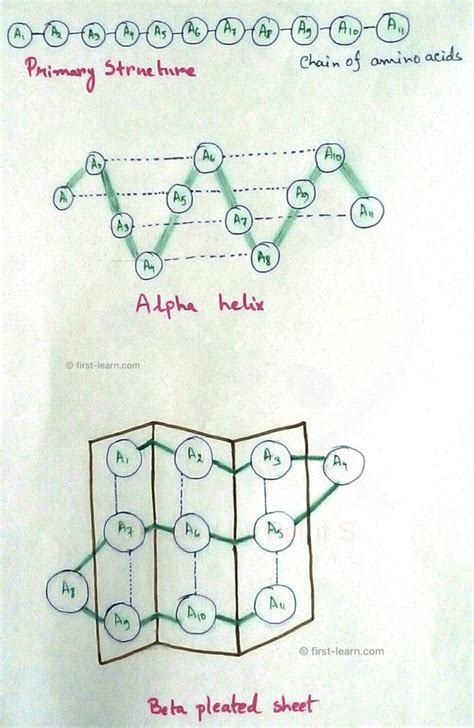 A1 A2 A3 A4 A5 A6 A7 A8 A9 A10 A11
Primary Structure
Chain of amino acids
A2 A6 A10
A1 A5 A9
A3 A7 A11
A4 A8
Alpha helix
© first-learn.com
A1 A2 A3 A4
A7 A6 A5
A8
A9 A10 A11
© first-learn.com
Beta pleated sheet